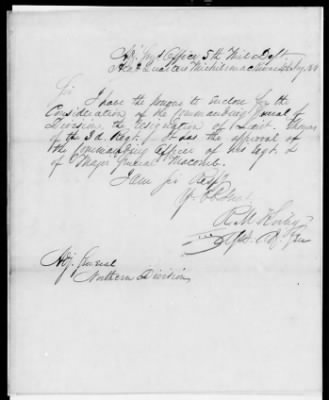 Adj. Genl Office 5th Mil. Dept.
Head Quarters Michilimackinac
Sir
I have the honour to enclose for the
Consideration of the Commanding General of
Division, the resignation of Lieut. Thomas
of the 3d. Regt. It has the approval of
the Commanding Officer of his Regt. &
of Major General Macomb.
I am Sir Resp
Yr Ob Servt
R. M. Kirby
Adj. General
Northern Division